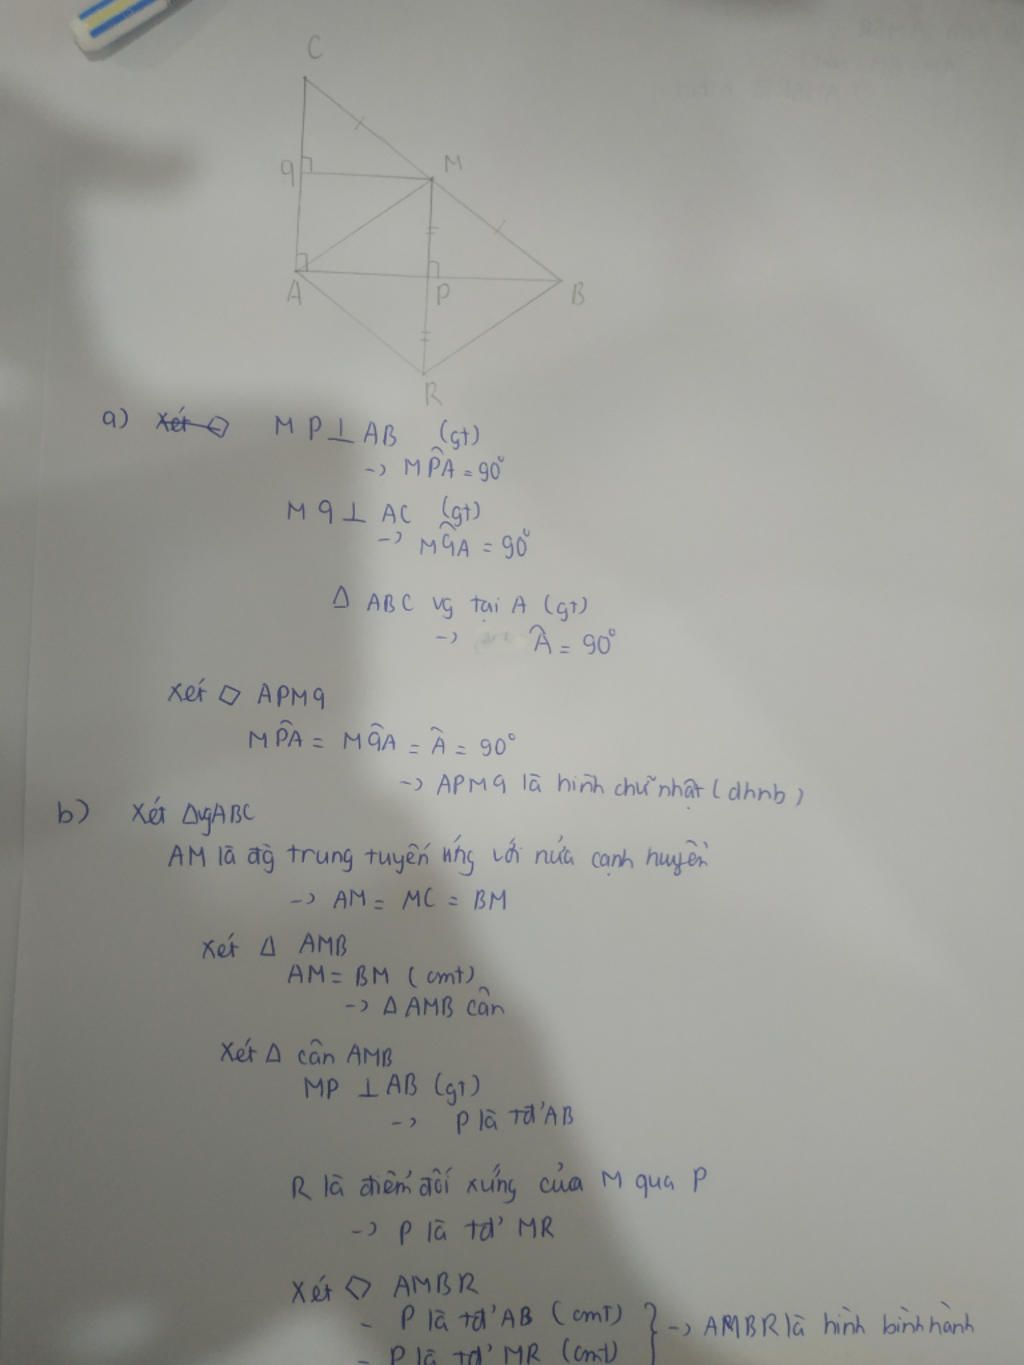 C
q
M
A
P
B
R
a) Xét ◇ MP ⊥ AB (gt)
-> MP̂A = 90°
Mq ⊥ AC (gt)
-> Mq̂A = 90°
Δ ABC vg tại A (gt)
-> Â = 90°
Xét ◇ APMq
MP̂A = Mq̂A = Â = 90°
-> APMq là hình chữ nhật (dhnb)
b) Xét ΔvgABC
AM là đg trung tuyến ứng với nửa cạnh huyền
-> AM = MC = BM
Xét Δ AMB
AM = BM (cmt)
-> Δ AMB cân
Xét Δ cân AMB
MP ⊥ AB (gt)
-> P là tđ' AB
R là điểm đối xứng của M qua P
-> P là tđ' MR
Xét ◇ AMBR
- P là tđ' AB (cmt) } -> AMBR là hình bình hành
- P là tđ' MR (cmt)